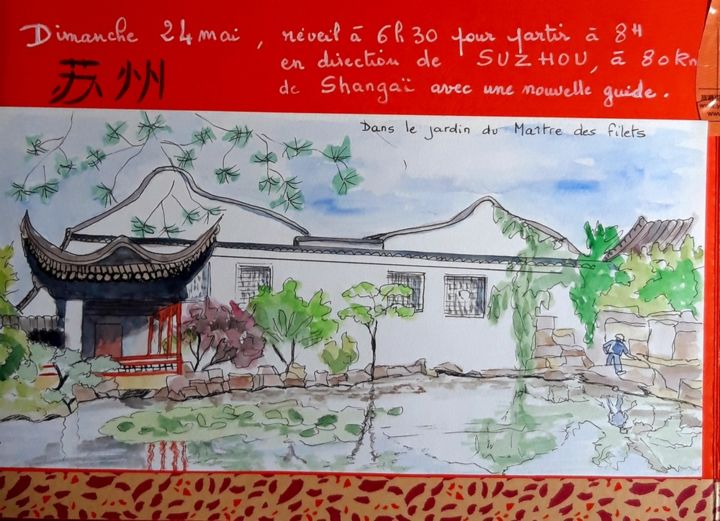 Dimanche 24 mai, réveil à 6h30 pour partir à 8H
en direction de SUZHOU, à 80km
苏州
de Shangaï avec une nouvelle guide.
Dans le jardin du Maître des filets